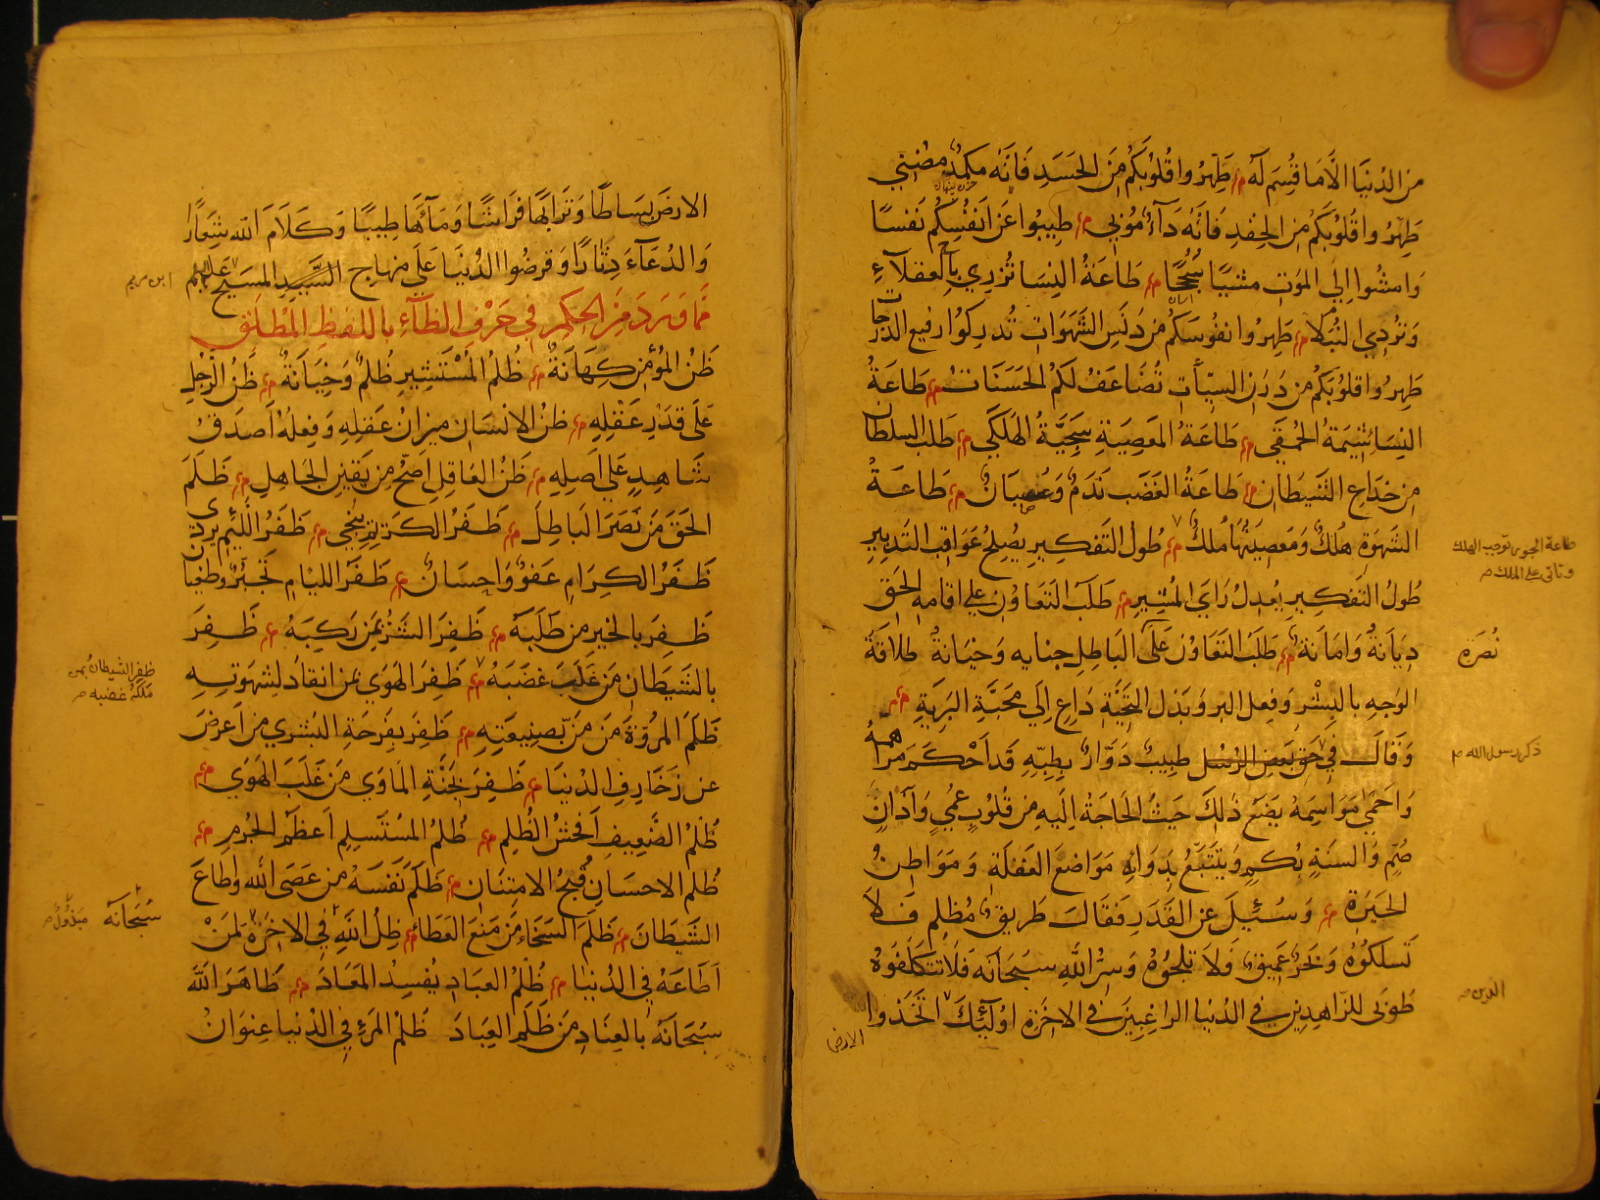 من الدُنيَا الّا مَا قُسِمَ لَهُ طَهِّرُوا قُلُوبَكُم مِنَ الحَسَدِ فَانَّهُ مكمِدٌ مُضنِي
طَهِّرُوا قُلُوبَكُم مِن الحِقدِ فَانّهُ دَآءٌ مُوبِي طِيبُوا عَن اَنفُسِكُم نَفسًا
وَامشُوا اِلَي المَوتِ مشيًا سُجُحًا طَاعَةُ النِسَا تُزرِي بِالعقلآءِ
وَتردِي النُبَلا طَهِّرُوا نفُوسَكُم مِن دَنَسِ الشَهَوَاتِ تُدرِكُوا رفيع الدَرجَات
طَهِّرُوا قلُوبَكُم مِن دَرَنِ السيّأتِ تُضَاعَفُ لَكُمُ الحَسَنَاتُ طَاعَةُ
النِسَا شِيمَةُ الحَمقَي طَاعَةُ المَعصِيَةِ سَجِيَّةُ الهَلكَي طَلَبُ السلطَان
مِن خِدَاعِ الشَيطَان طَاعَةُ الغَضَب نَدَمٌ وَعِصيَانٌ طَاعَةُ
الشَهوَةِ هُلكٌ وَمَعصِيَتُهَا مُلكٌ طُولُ التَفكِيرِ يُصلِحُ عَوَاقِبَ التَدبِيرِ
طُولُ التَفكِيرِ يُعدِلُ رَايَ المُشِيرِ طَلَبُ التَعَاوُنِ عَلي اقَامَةِ الحَقِ
دِيَانَةٌ وَامَانَةٌ طَلَبُ التَعَاوُنِ عَلَي البَاطِلِ جنايه وَخيَانَةٌ طلاقَةُ
الوَجهِ بالبِشرِ وَفِعلِ البِرِ وَبَذلِ التَحِيَّةِ دَاعٍ اِلَي مَحَبَّةِ البَرِيَةِ
وَقَالَ في حَق بَعضِ الرُسُلِ طَبِيبٌ دَوَّارٌ بِطِبِّهِ قَد اَحكَمَ مَرَاهمهُ
وَاحمَي مَوَاسِمَهُ يَضَعُ ذلِكَ حَيثُ الحَاجَةُ اِلَيهِ مِن قُلُوبٍ عُميٍ وَآذَانٍ
صُمٍّ وَالسنَةٍ بُكمٍ وَيَتَتَبَّعُ بِدَوَآئِهِ مَوَاضعَ الغَفلَةِ وَمَوَاطِنَ
الحَيرَةِ وَسُئِلَ عَنِ القَدَرِ فَقَالَ طَرِيقٌ مُظلِمٌ فَلَا
تَسلكُوهُ وَبَحرٌ عَمِيقٌ فَلَا تَلِجُوهُ وَسِرُّ اللّهِ سبحَانَه فَلَا تَتكَلّفُوهُ
طُوبَي للزّاهِدِينَ في الدُنيَا الراغِبِينَ في الاخِرَةِ اُولَئِكَ اتَّخَذُوا
طاعة الجور توجب الهلك
وتاتي علي الملك
نُصرَةِ
ذكر رسول الله
الذين
الارض
الارضَ بِسَاطًا وَتُرَابَهَا فِرَاشًا وَمَآئَهَا طِيبًا وَكَلَامَ اللّه شِعَارًا
وَالدُعَآءَ دِثَارًا وَقرضُوا الدُنيَا عَلَي مِنهَاجِ السَّيِّدِ المَسِيحِ عَليه السلم
ابن مريم
مِمّا وَرَدَ مِنَ الحِكَمِ فِي حَرفِ الظَآءِ بِاللفظِ المُطلَقِ
ظَنُ المُؤمِن كِهَانَةٌ ظُلمُ المُستَشِيرِ ظُلمٌ وَخِيَانَةٌ ظَنُ الرَجُلِ
عَلَي قَدرِ عَقلِهِ ظَنُ الانسَانِ مِيزَانُ عَقلِهِ وَفِعلُهُ اَصدَقُ
شَاهِدٍ عَلي اَصلِهِ ظَنُ العَاقِلِ اصَحُّ مِن يَقِينِ الجَاهِلِ ظَلَمَ
الحَقَ مَن نَصَرَ البَاطِلَ ظَفَرُ الكَرِيمِ يُنجِي ظَفَرُ اللّئِيمِ يردِي
ظَفَرُ الكِرَامِ عَفوٌ وَاحِسَانٌ ظَفَرُ الليَامِ تَجَبُّرٌ وَطُغيَان
ظَفِرَ بالخَيرِ مَن طَلَبَهُ ظَفِرَ الشَرُّ بِمَن رَكِبَهُ ظَفِرَ
بالشَيطَانِ مَن غَلَبَ غَضَبَهُ ظَفِرَ الهَوَي بِمَن انقَادَ لِشهوَتِهِ
ظفر الشيطان بمن
مَلَكَهُ غضبه
ظَلَمَ المُروَّةَ مَن مَنَّ بصَنِيعَتِهِ ظَفِرَ بِفَرحَةِ البُشرَي مَن اَعرَضَ
عَن زَخَارِفِ الدُنيَا ظَفِرَ بِجَنَّةِ المَاوَي مَن غَلَبَ الهَوَي
ظُلمُ الضَّعِيفِ اَفحَشُ الظُلمِ ظُلمُ المُستَسلِمِ اَعظَمُ الجُرمِ
ظُلم الاحسَانِ قُبحُ الامتِنَان ظَلَمَ نَفسَهُ مَن عَصَي اللّه وَاَطَاعَ
الشَيطَانَ ظَلَمَ السَخَاءَ مَن مَنَعَ العَطَاءَ ظِلُ اللّهِ فِي الاخِرَةِ لِمَن
سُبحَانَهُ مَبذُولٌ
اَطَاعَهُ فِي الدُنيَا ظُلمُ العِبَادِ يُفسِدُ المَعَادَ ظَاهَرَ اللّهَ
سُبحَانَهُ بالعِنَادِ مَن ظَلَمَ العِبَادَ ظُلمُ المَرءِ فِي الدُنيَا عِنوَانُ